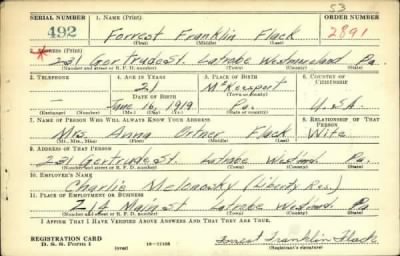 53
SERIAL NUMBER 1. NAME (Print) ORDER NUMBER
492 Forrest Franklin Flack 2891
(First) (Middle) (Last)
2. ADDRESS (Print)
231 Gertrude St. Latrobe Westmoreland Pa.
(Number and street or R. F. D. number) (Town) (County) (State)
3. TELEPHONE 4. AGE IN YEARS 5. PLACE OF BIRTH 6. COUNTRY OF CITIZENSHIP
21 McKeesport
(Town or county)
— DATE OF BIRTH
June 16, 1919 Pa. U.S.A.
(Exchange) (Number) (Mo.) (Day) (Yr.) (State or country)
7. NAME OF PERSON WHO WILL ALWAYS KNOW YOUR ADDRESS 8. RELATIONSHIP OF THAT PERSON
Mrs. Anna Ortner Flack Wife
(Mr., Mrs., Miss) (First) (Middle) (Last)
9. ADDRESS OF THAT PERSON
231 Gertrude St Latrobe Westmd. Pa.
(Number and street or R. F. D. number) (Town) (County) (State)
10. EMPLOYER'S NAME
Charlie (Liberty Res.)
11. PLACE OF EMPLOYMENT OR BUSINESS
214 Main st Latrobe Westmd. Pa
(Number and street or R. F. D. number) (Town) (County) (State)
I AFFIRM THAT I HAVE VERIFIED ABOVE ANSWERS AND THAT THEY ARE TRUE.
REGISTRATION CARD
D. S. S. FORM 1 (over) Forrest Franklin Flack
(Registrant's signature)